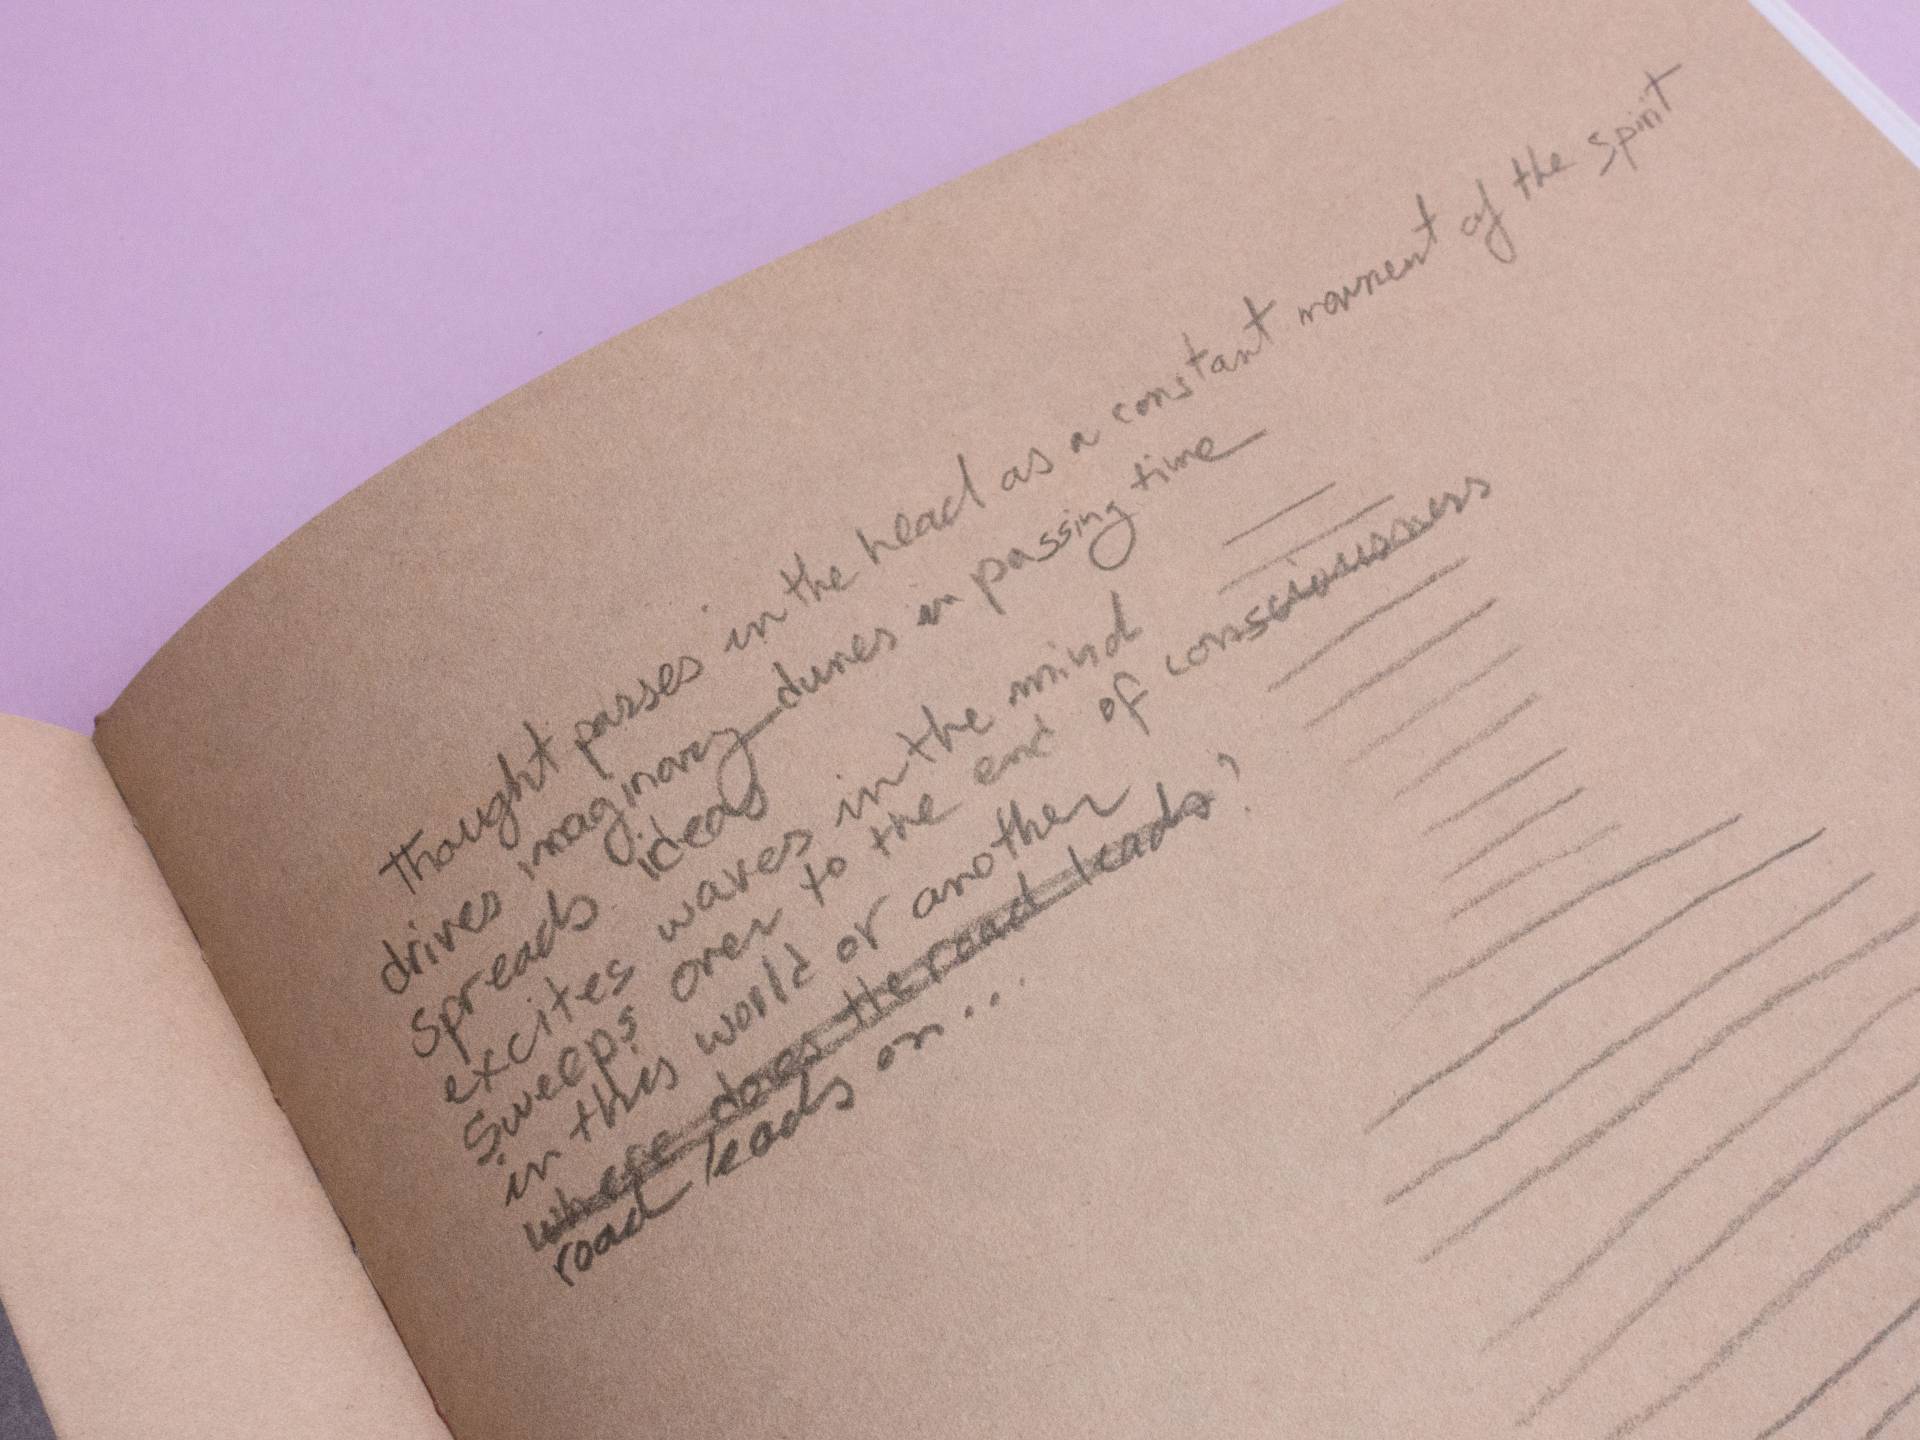 Thought passes in the head as a constant movement of the spirit
drives imaginary dunes in passing time
Spreads ideas
excites waves in the mind
Sweeps over to the end of consciousness
in this world or another
where does the road leads?
road leads on...